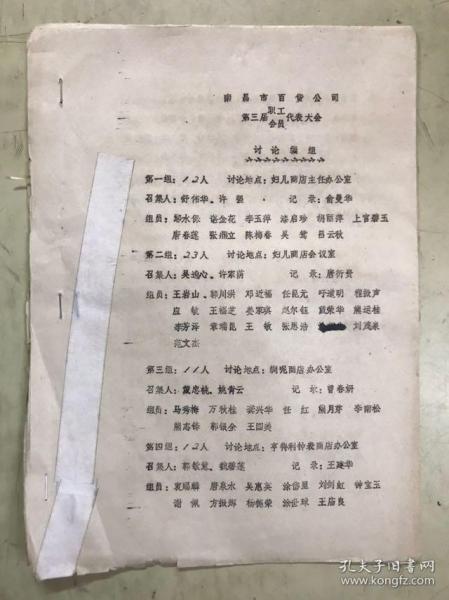 南昌市百货公司
第三届职工会员代表大会
讨论编组
第一组：12人 讨论地点：妇儿商店主任办公室
召集人：舒伟华、许强 记录：俞曼华
组员：邹水保 谌金花 李玉萍 涂启珍 胡丽萍 上官碧玉
唐春莲 张燕立 陈梅春 吴莺 吕云秋
第二组：23人 讨论地点：妇儿商店会议室
召集人：吴鸿心、许家荫 记录：唐衍贵
组员：王岩山、郭川洪 邓近福 任昆元 程欲声
应敏 王福芝 娄家琪 赵尔钰 戴荣华 熊运桂
李万泽 章瑞昆 王敏 张思浩 刘茂泉
范文杰
第三组：11人 讨论地点：绸呢商店办公室
召集人：黄忠桃、姚青云 记录：曾春妍
组员：马秀梅 万牧桂 裘兴华 任红 熊月芽 李南松
熊志锋 郭银金 王四美
第四组：12人 讨论地点：亨得利钟表商店办公室
召集人：郭敏龙、魏碧莲 记录：王延华
组员：袁赐麟 唐泉水 吴惠兴 涂岱里 刘剑虹 钟宝玉
谢佩 方振辉 杨艳荣 涂世球 王庙良
孔夫子旧书网
www.kongfz.com